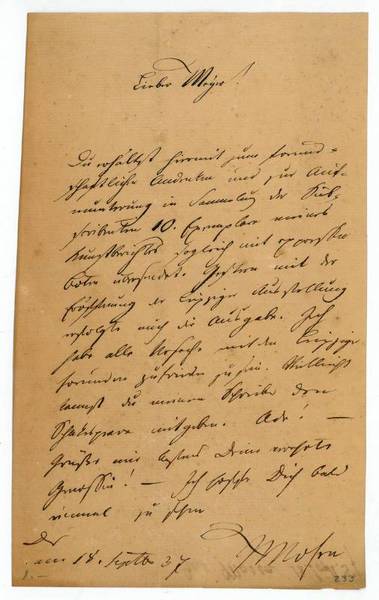 Lieber Meyer!
Du erhältst hiermit zum freund-
schaftlichen Andenken und zur Auf-
munterung in Sammlung der Sub-
skribenten 10. Exemplare meines
Kunstberichtes sogleich mit expressen
boten übersendet. Gestern mit der
Eröffnung der Leipziger Ausstellung
erfolgte auch die Ausgabe. Ich
habe alle Ursache mit den Leipziger
Freunden zufrieden zu sein. Vielleicht
kannst du meinem Schreiben den
Shakespeare mitgeben. Ade! —
Grüße mir bestens Deine verehrte
Genossin! — Ich hoffe Dich bald
einmal zu sehen
am 18. Septbr 37
Mosen
233